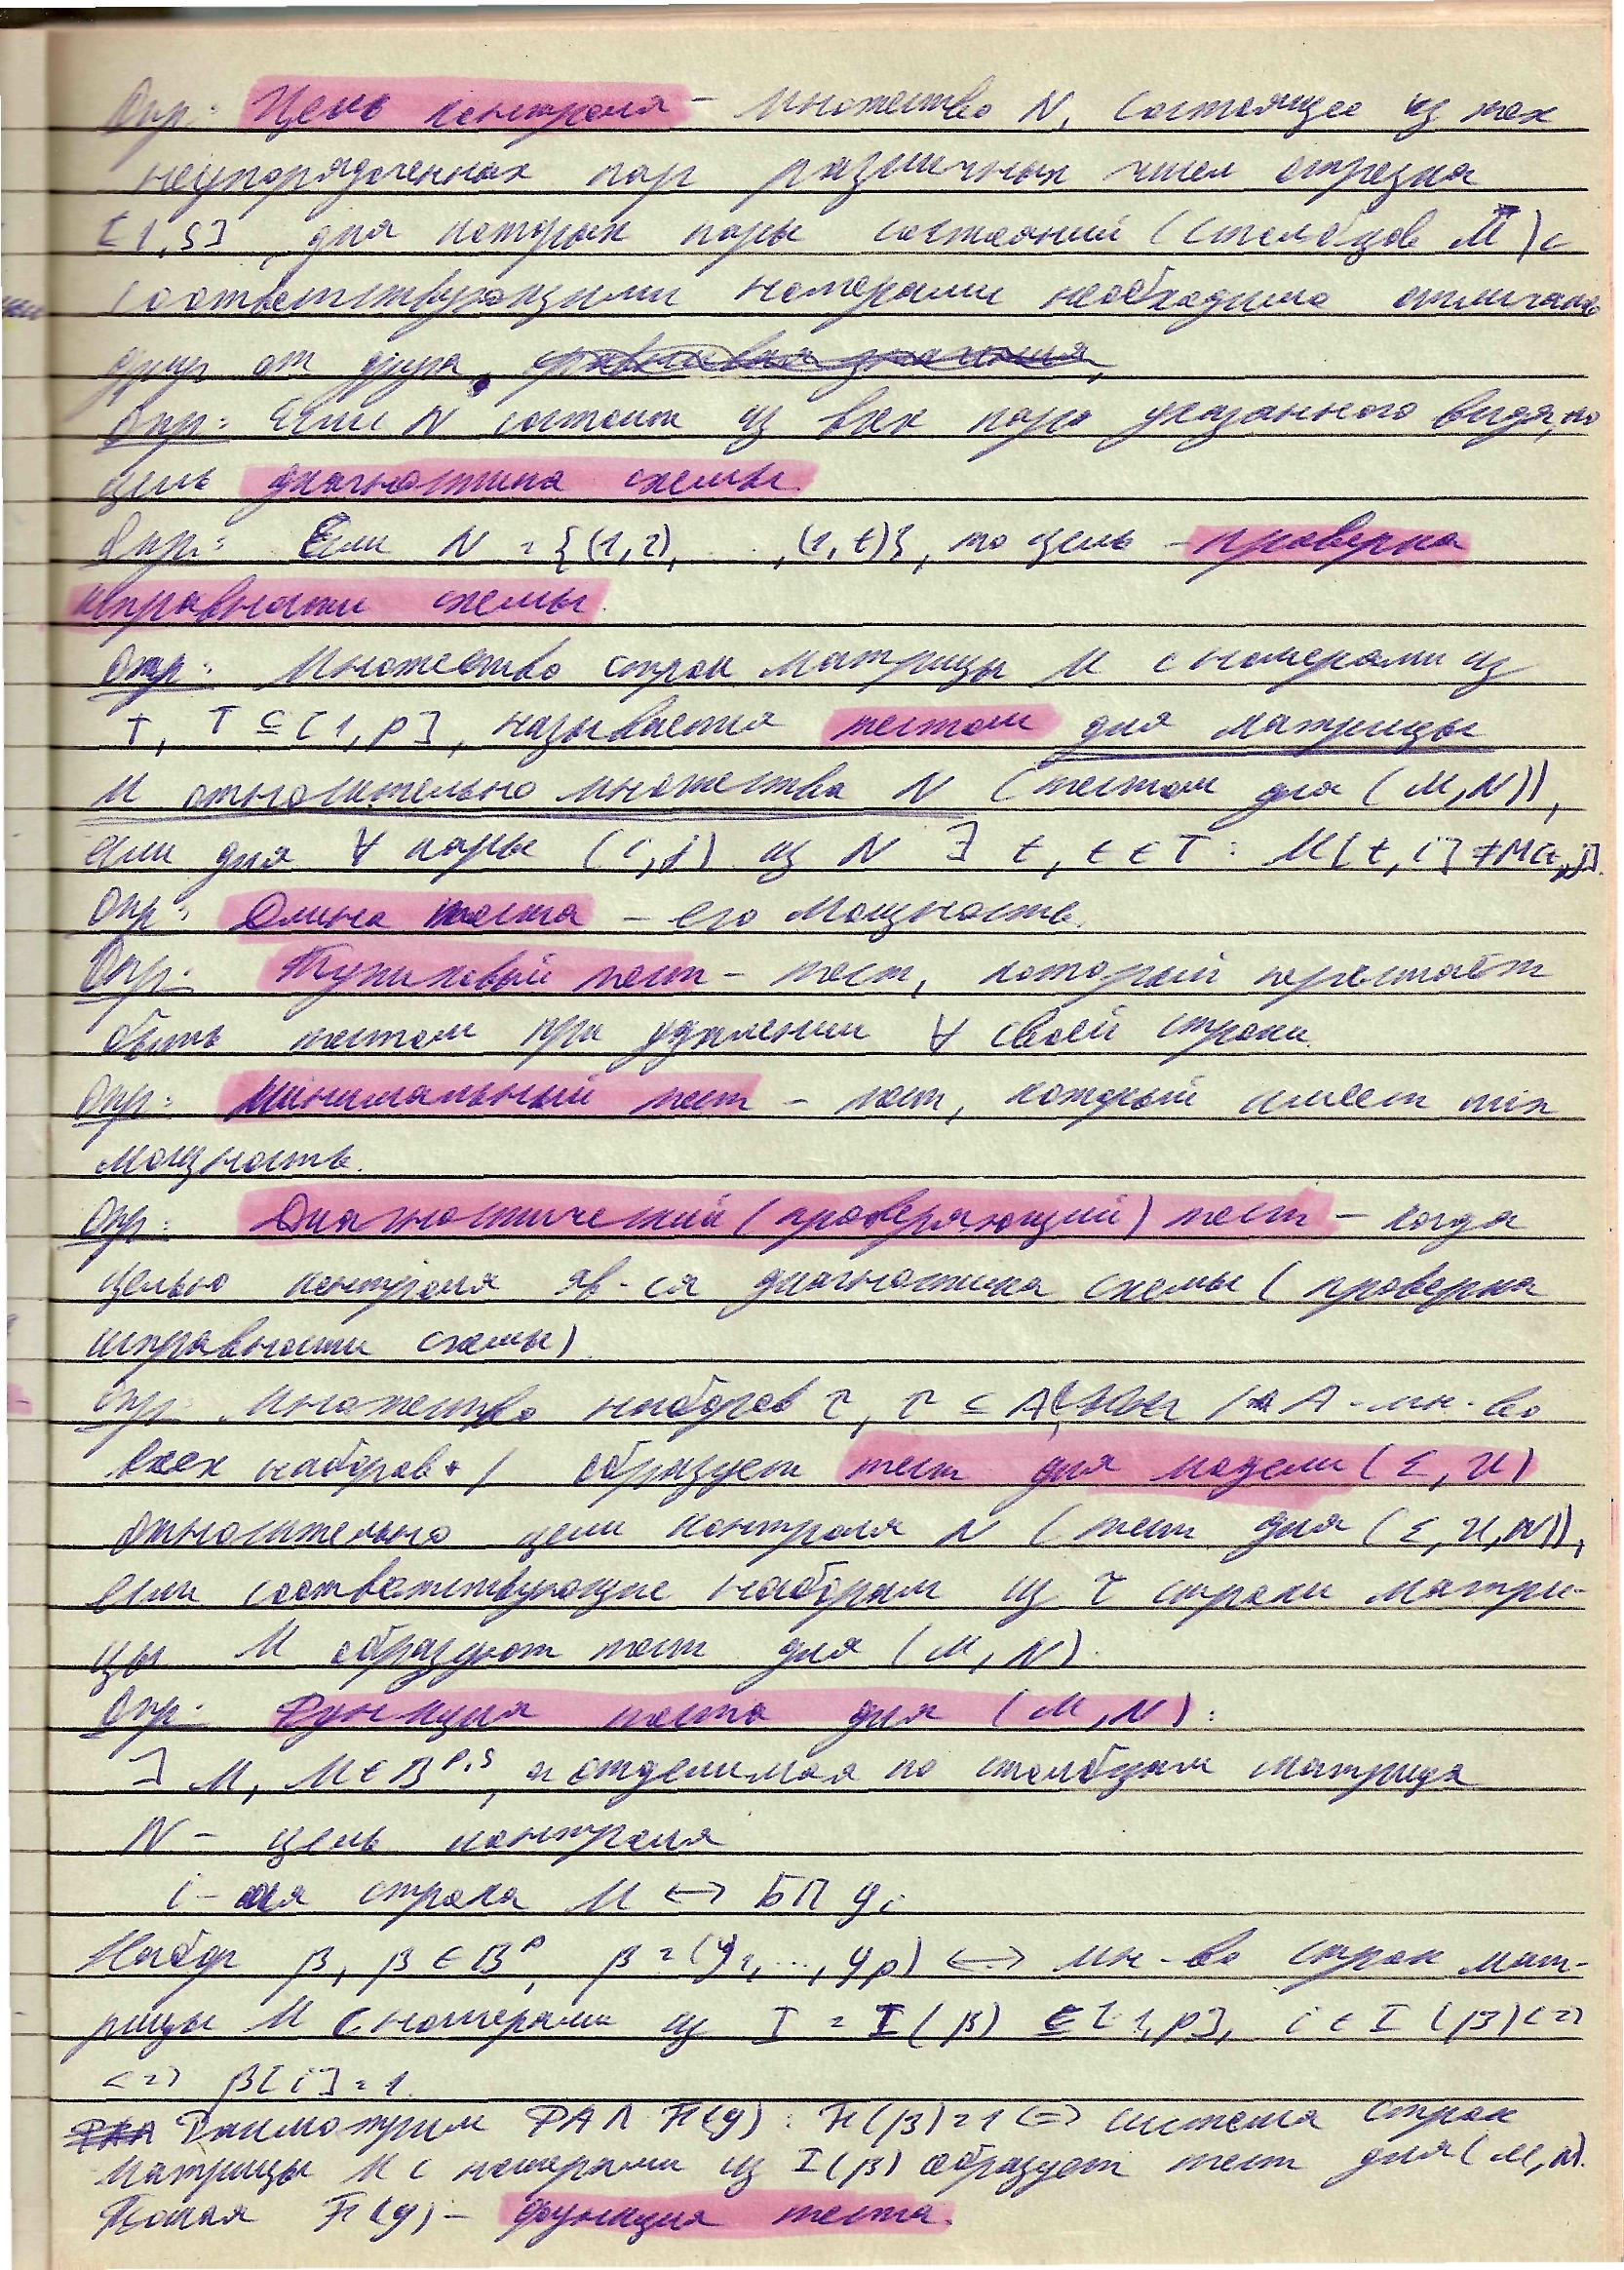 Опр: Цель контроля – множество N, состоящее из тех
неупорядоченных пар различных чисел отрезка
[1,S], для которых пары состояний (столбцов M) с
соответствующими номерами необходимо отличать
друг от друга.
Опр: Если N состоит из всех пар указанного вида, то
цель диагностика схемы.
Опр: Если N = {(1,2), ..., (1,t)}, то цель – проверка
исправности схемы.
Опр: Множество строк матрицы M с номерами из
T, T ⊆ [1,p], называется тестом для матрицы
M относительно множества N (тестом для (M,N)),
если для ∀ пары (i,j) из N ∃ t, t ∈ T: M[t,i] ≠ M[t,j].
Опр: Длина теста – его мощность.
Опр: Тупиковый тест – тест, который перестаёт
быть тестом при удалении ∀ своей строки.
Опр: Минимальный тест – тест, который имеет min
мощность.
Опр: Диагностический (проверяющий) тест – когда
целью контроля яв-ся диагностика схемы (проверка
исправности схемы)
Опр: Множество наборов τ, τ ⊆ A / A - мн-во
всех наборов / образует тест для модели (Σ, U)
относительно цели контроля N (тест для (Σ, U, N)),
если соответствующие наборам из τ строки матри-
цы M образуют тест для (M, N).
Опр: Функция теста для (M, N):
∃ M, M ∈ B^{p,s}, отделимая по столбцам матрица
N – цель контроля
i-ая строка M ↔ БП y_i
Набор β, β ∈ B^p, β = (y_1, ..., y_p) ↔ мн-во строк мат-
рицы M с номерами из I = I(β) ⊆ [1,p], i ∈ I(β) <=>
<=> β[i] = 1.
Рассмотрим ФАЛ F(y): F(β) = 1 <=> система строк
матрицы M с номерами из I(β) образует тест для (M,N).
Такая F(y) – функция теста.